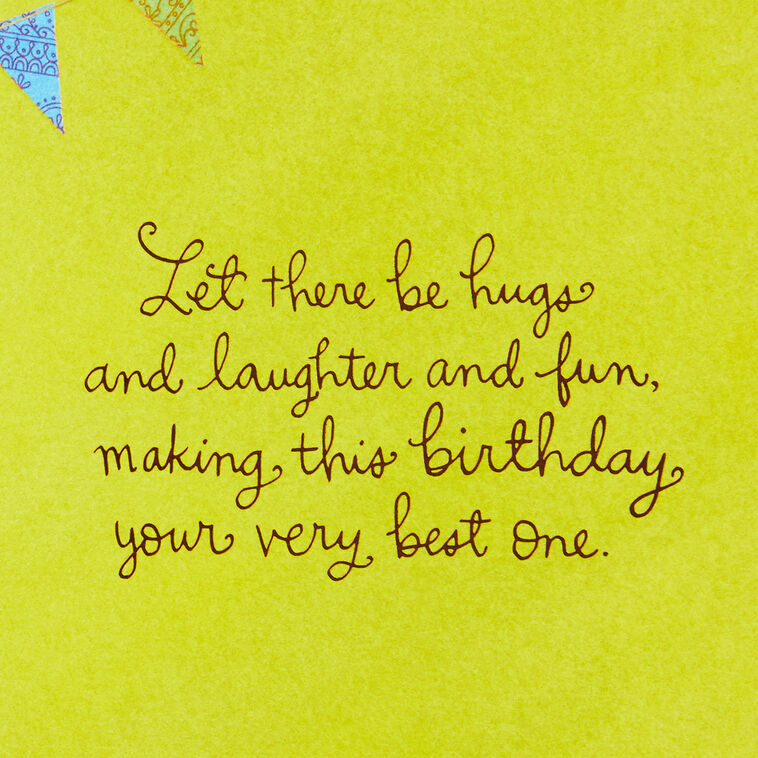 Let there be hugs
and laughter and fun,
making this birthday
your very best one.